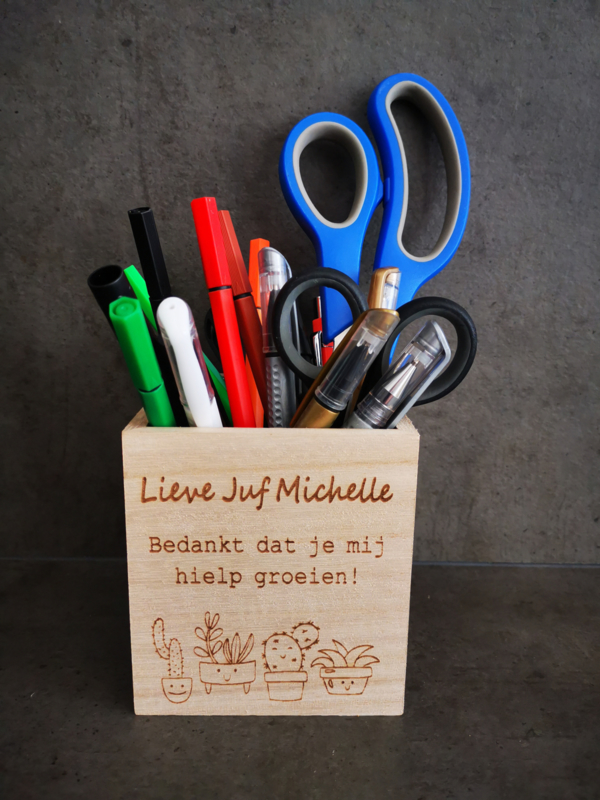 Lieve Juf Michelle
Bedankt dat je mij
hielp groeien!